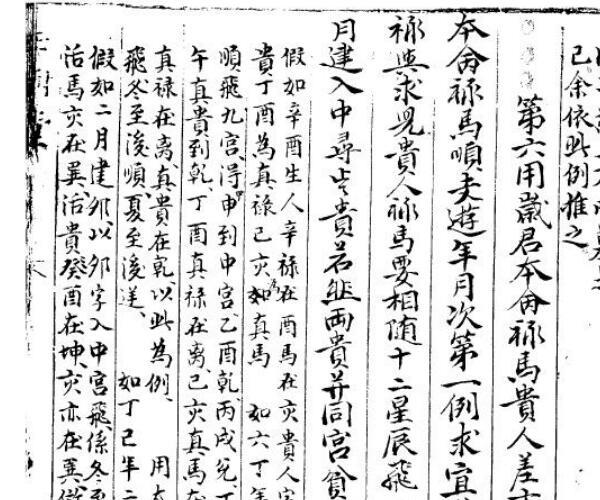 己余依此例推之
第六用歲君本命祿馬貴人差
本命祿馬順夫遊年月次第一例求宜
祿與求見貴人祿馬要相随十二星辰飛
月建入中尋貴若両貴并同宮
假如辛酉生人辛禄在酉馬在亥貴人
貴丁酉為真禄己亥為真馬 如六丁年
順飛九宮淂申到中宮乙酉乾丙戌兊丁
午真貴到乾丁酉真禄在離己亥真馬在
真禄在離真貴在乾以此為例 用太
飛冬至後順夏至後逆 如丁己年二
假如二月建卯以卯字入中宮飛係冬至
活馬亥在巽活貴癸酉在坤亥亦在巽